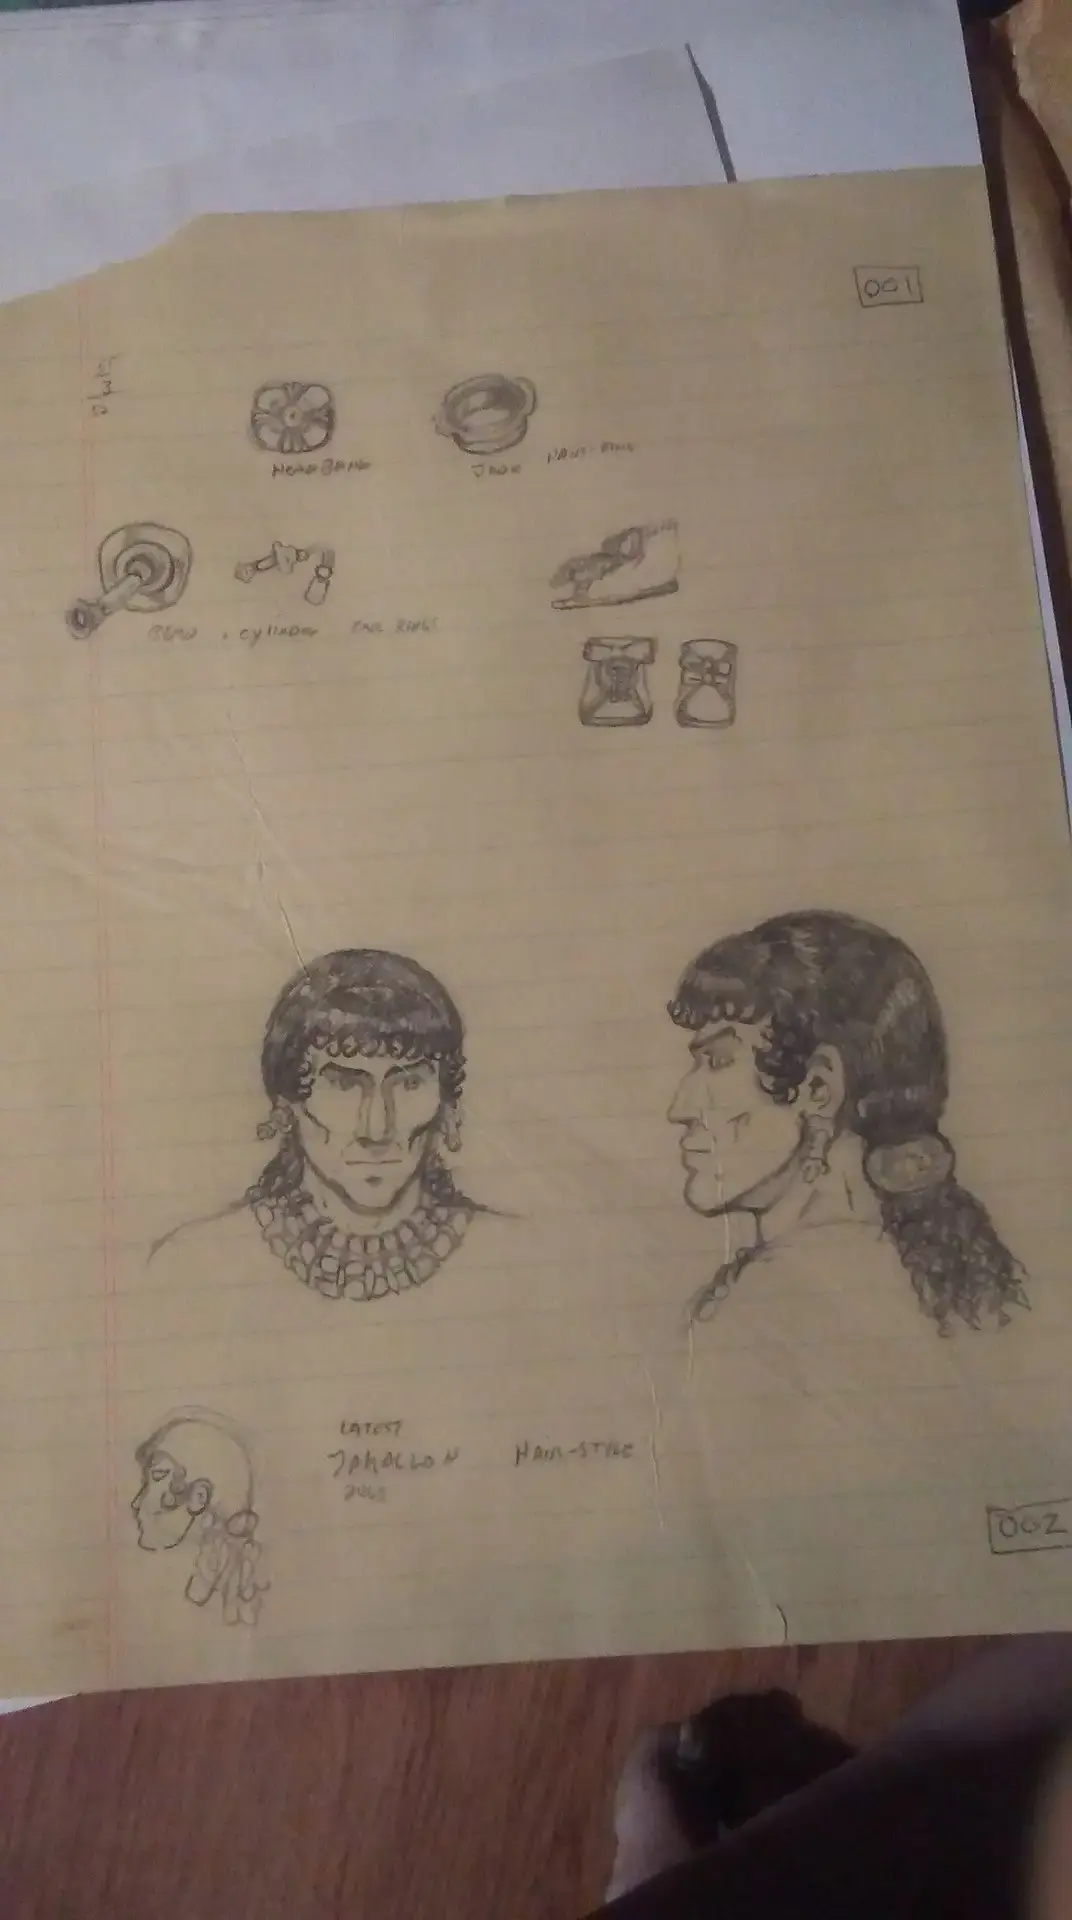 001
HEADBAND
JADE HAIR-RING
BEAD + cylinder EAR RINGS
LATEST
HAIR-STYLE
002